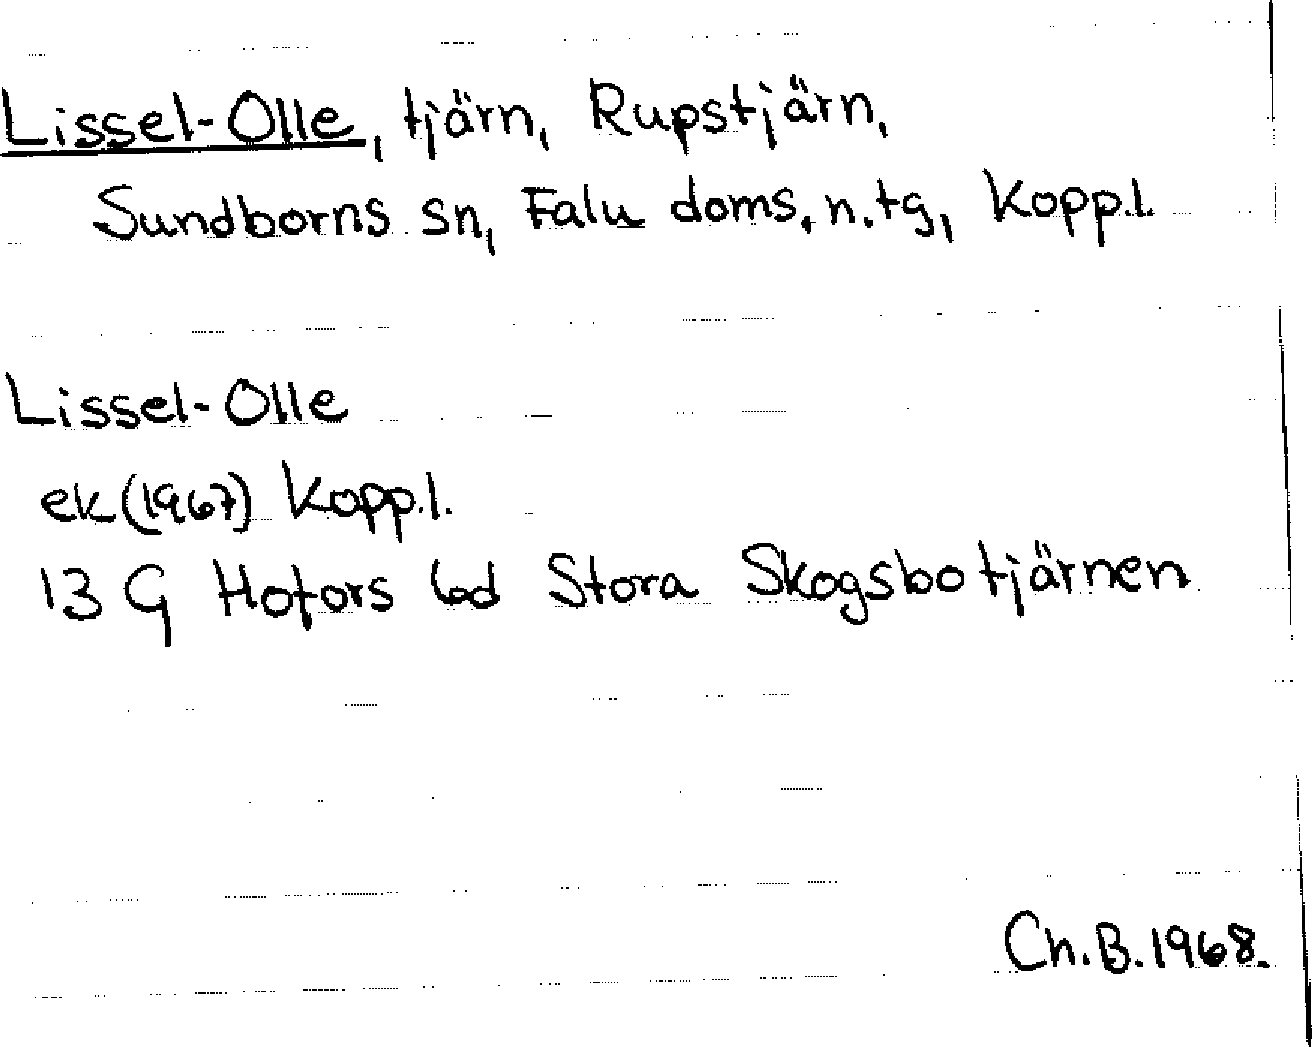 Lissel-Olle, tjärn, Rupstjärn,
Sundborns sn, Falu doms. n. tg, Kopp.l.
Lissel-Olle
ek (1967) Kopp.l.
13 G Hofors 6d Stora Skogsbotjärnen
Ch.B.1968.